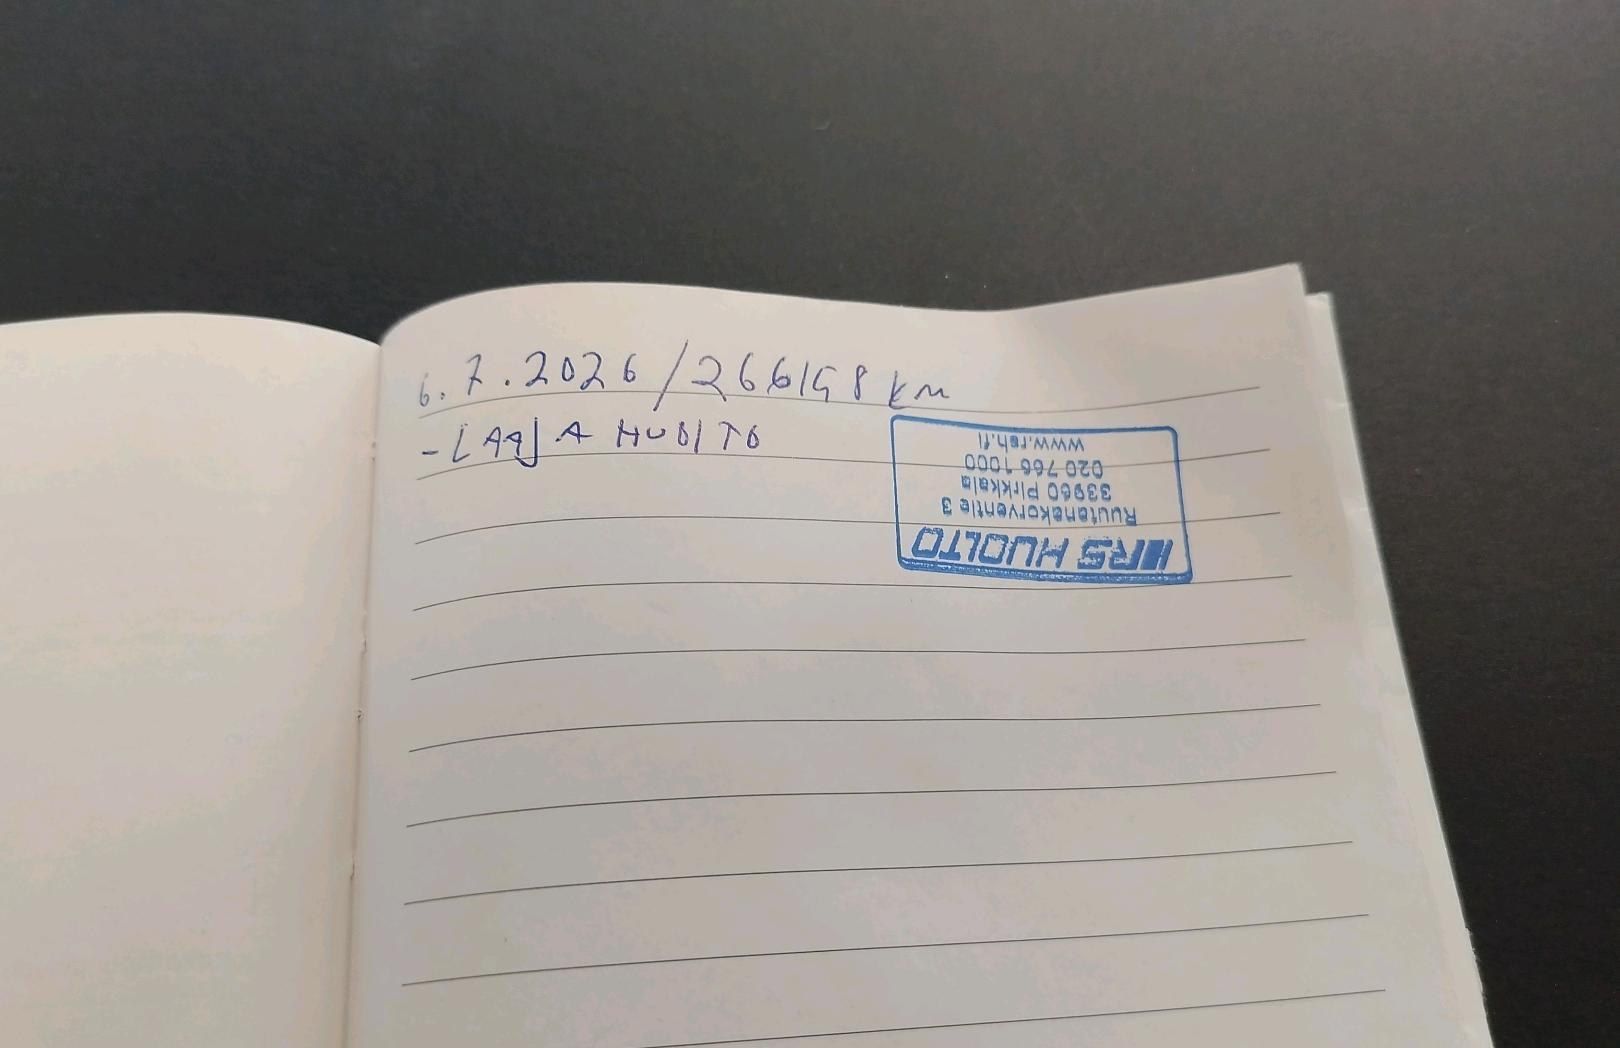 6.7.2026/266198 km
-LAAJA HUOLTO
RS HUOLTO
Ruutanakorventie 3
33960 Pirkkala
020 766 1000
www.rsh.fi